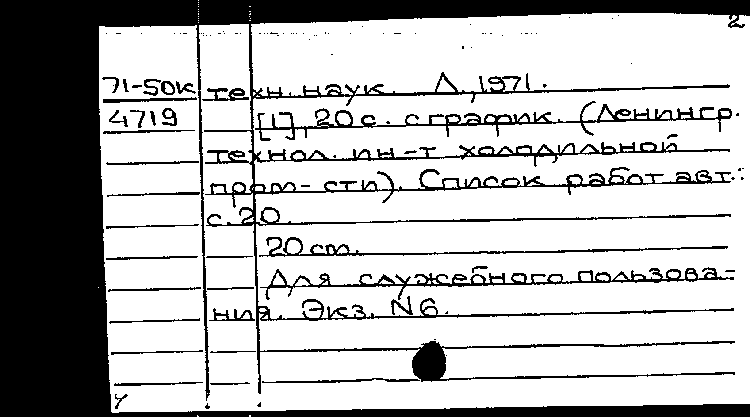 2
71-50к техн. наук. Л., 1971.
4719 [1], 20 с. с график. (Ленингр.
технол. ин-т холодильной
пром-сти). Список работ авт.:
с. 20.
20 см.
Для служебного пользова-
ния. Экз. N6.